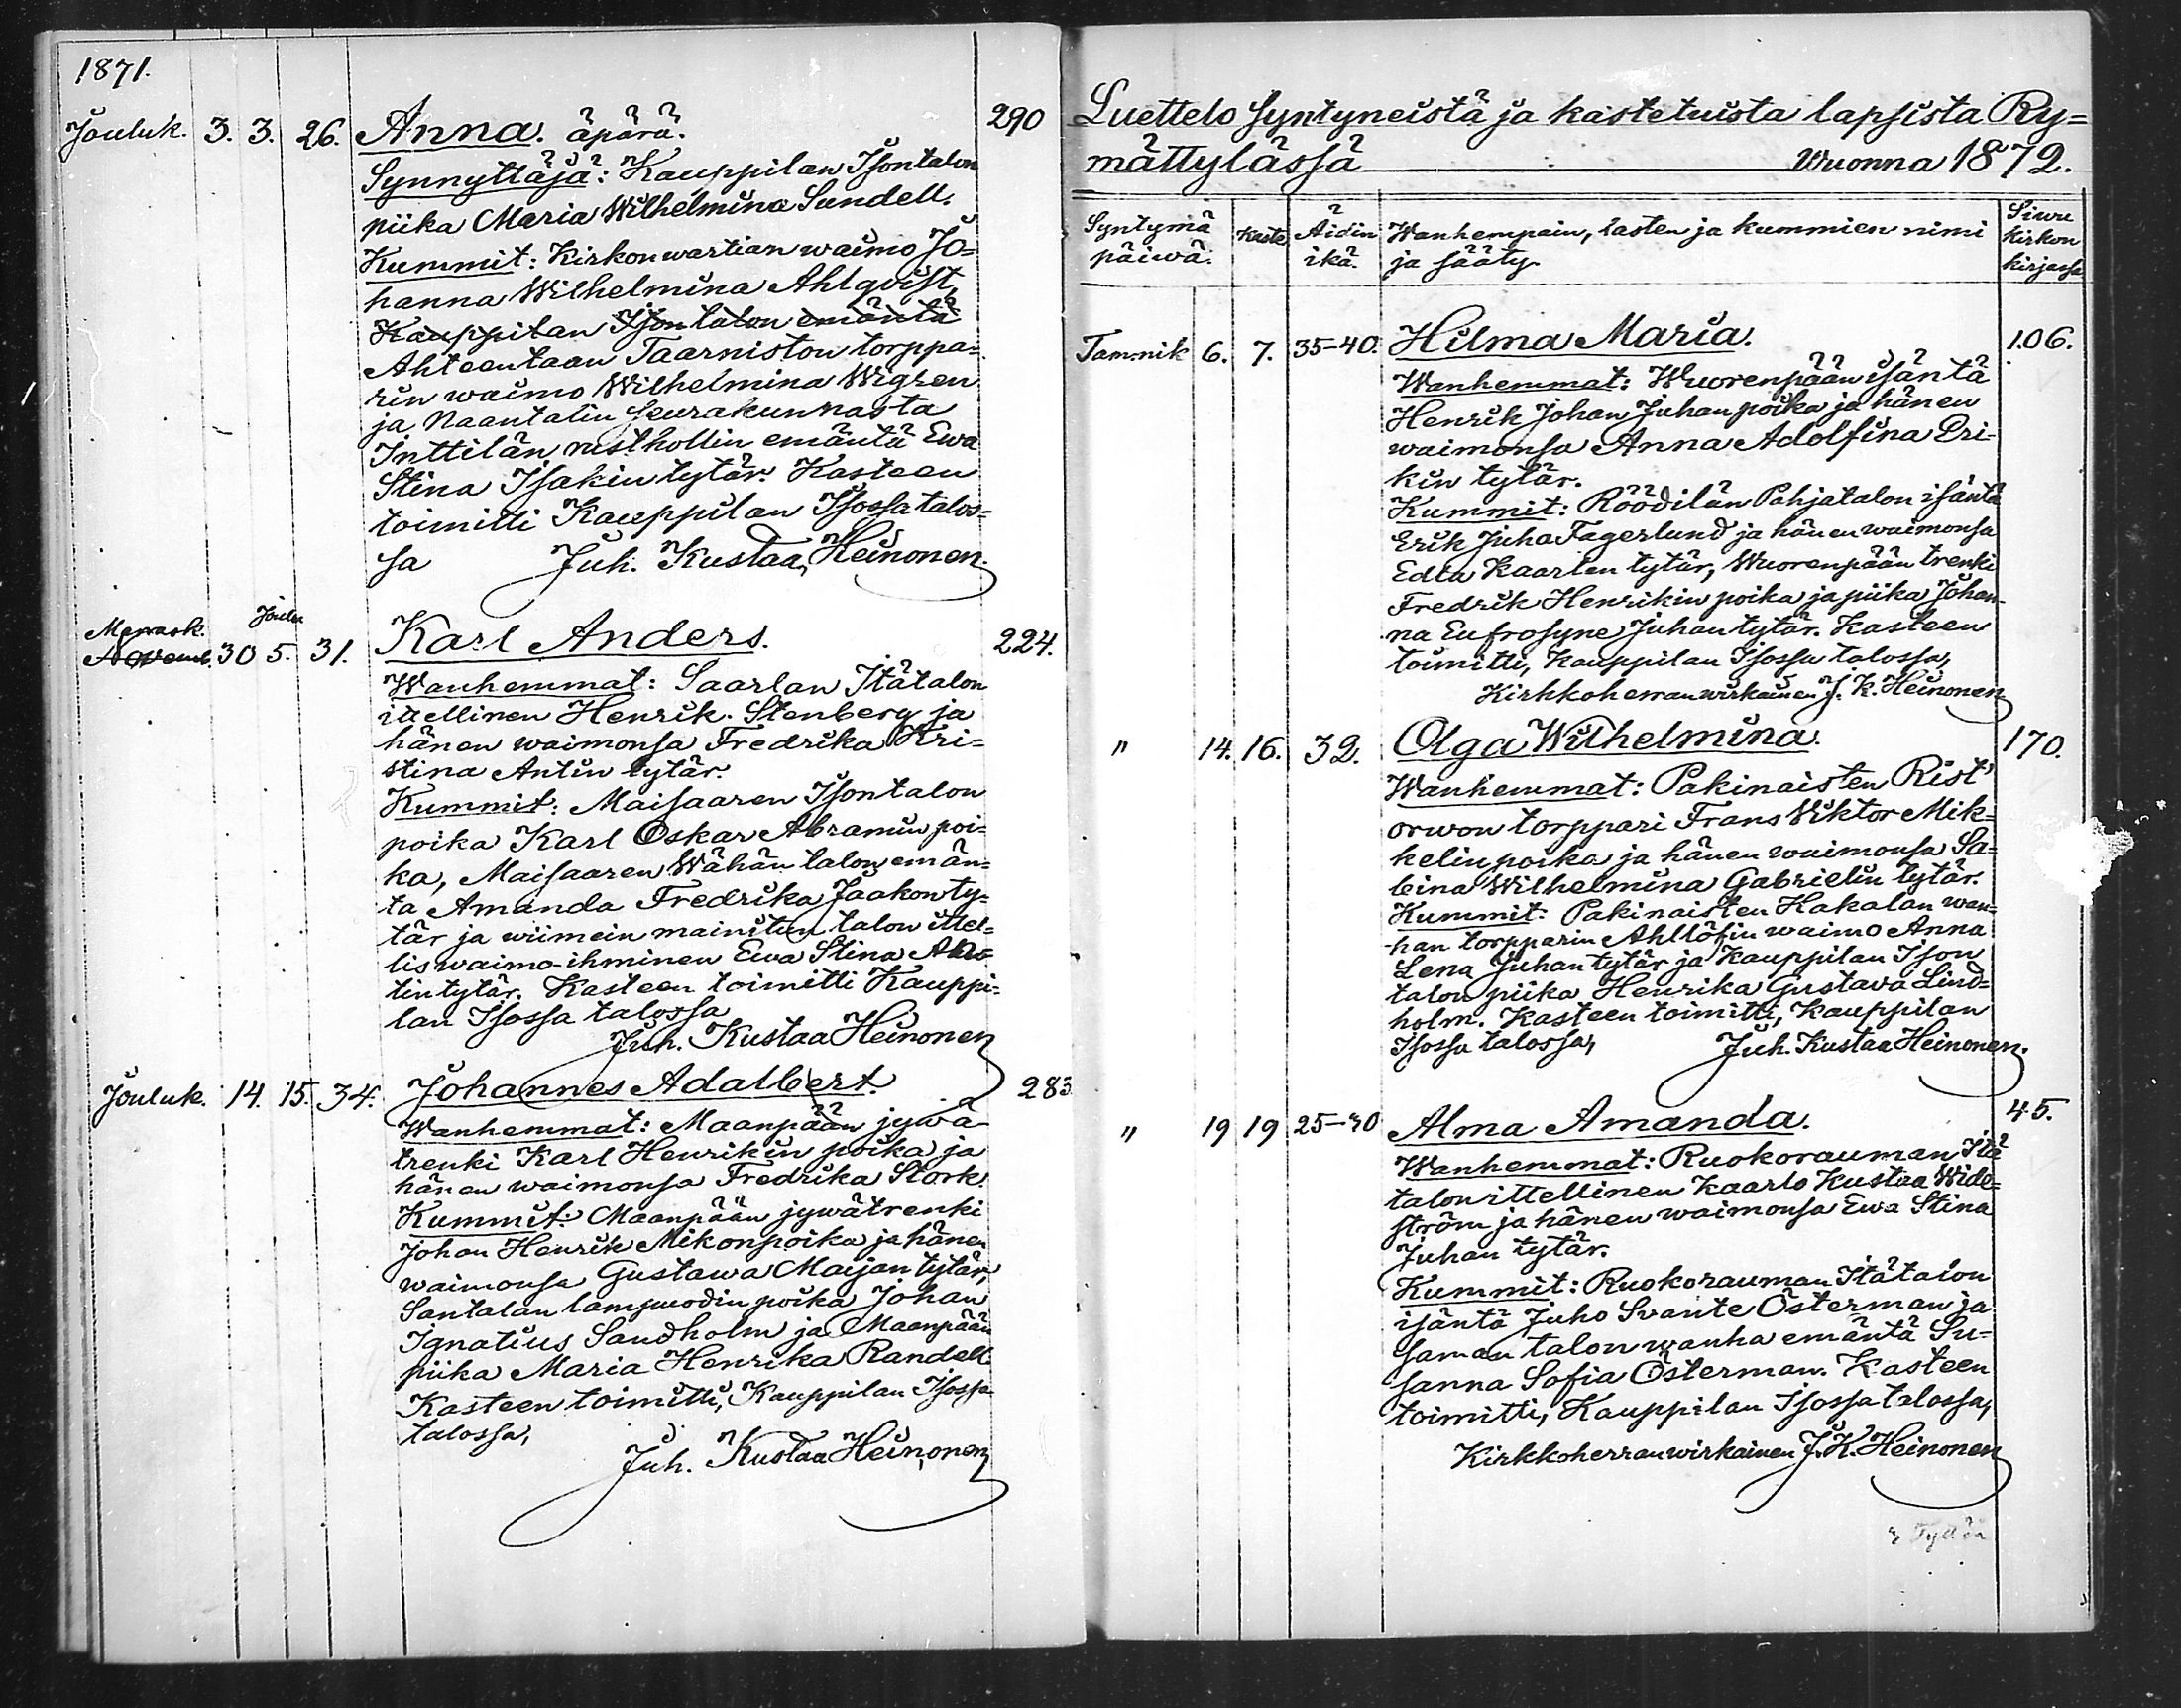 1871.
Jouluk. 3. 3. 26. Anna. äpärä. 290
Synnyttäjä: Kauppilan Isontalon
piika Maria Wilhelmina Sundell.
Kummit: Kirkonwartian waimo Jo=
hanna Wilhelmina Ahlqvist,
Kauppilan Isontalon emäntä
Ahteentaan Taarniston torppa=
rin waimo Wilhelmina Wigren
ja Naantalin seurakunnasta
Inttilän rusthollin emäntä Ewa
Stina Isakin tytär. Kasteen
toimitti Kauppilan Isossa talos=
sa Juh. Kustaa Heinonen.
Marrask. Joulu
Novemb. 30 5. 31. Karl Anders. 224.
Wanhemmat: Saarlan Itätalon
ittellinen Henrik Stenberg ja
hänen waimonsa Fredrika Kri=
stina Antin tytär.
Kummit: Maisaaren Isontalon
poika Karl Oskar Abramin poi=
ka, Maisaaren Wähän talon emän=
tä Amanda Fredrika Jaakon ty=
tär ja wiimein mainitun talon ittel=
lis waimo-ihminen Ewa Stina
tin tytär. Kasteen toimitti Kauppi=
lan Isossa talossa
Juh. Kustaa Heinonen
Jouluk. 14. 15. 34. Johannes Adalbert. 283
Wanhemmat: Maanpään jywä-
trenki Karl Henrikin poika ja
hänen waimonsa Fredrika Stork.
Kummit: Maanpään jywätrenki
Johan Henrik Mikonpoika ja hänen
waimonsa Gustawa Maijan tytär,
Santalan lampuodin poika Johan
Ignatius Sandholm ja Maanpään
piika Maria Henrika Randell.
Kasteen toimitti, Kauppilan Isossa
talossa,
Juh. Kustaa Heinonen
Luettelo syntyneistä ja kastetuista lapsista Ry=
mättylässä Wuonna 1872.
Syntymä päiwä. Kaste Äidin ikä. Wanhempain, lasten ja kummien nimi ja sääty. Siwu kirkon kirjassa
Tammik 6. 7. 35-40. Hilma Maria. 106.
Wanhemmat: Wuorenpään isäntä
Henrik Johan Juhan poika ja hänen
waimonsa Anna Adolfina Eri-
kin tytär.
Kummit: Röödilän Pohjatalon isäntä
Erik Juha Fagerlund ja hänen waimonsa
Edla Kaarlen tytär, Wuorenpään trenki
Fredrik Henrikin poika ja piika Johan-
na Eufrosyne Juhan tytär. Kasteen
toimitti, Kauppilan Isossa talossa,
Kirkkoherran wirkainen J. K. Heinonen
" 14. 16. 32. Olga Wilhelmina. 170.
Wanhemmat: Pakinaisten Rist'
orwon torppari Frans Viktor Mik=
kelin poika ja hänen waimonsa Sa=
bina Wilhelmina Gabrielin tytär.
Kummit: Pakinaisten Kakalan wan=
han torpparin Ahllöfin waimo Anna
Lena Juhan tytär ja Kauppilan Ison
talon piika Henrika Gustava Lind=
holm. Kasteen toimitti, Kauppilan
Isossa talossa, Juh. Kustaa Heinonen.
" 19 19 25-30 Alma Amanda. 45.
Wanhemmat: Ruokorauman Itä
talon ittellinen Kaarlo Kustaa Wide=
ström ja hänen waimonsa Ewa Stina
Juhan tytär.
Kummit: Ruokorauman Itätalon
isäntä Juho Svante Österman ja
saman talon wanha emäntä Su=
sanna Sofia Österman. Kasteen
toimitti, Kauppilan Isossa talossa,
Kirkkoherran wirkainen J. K. Heinonen